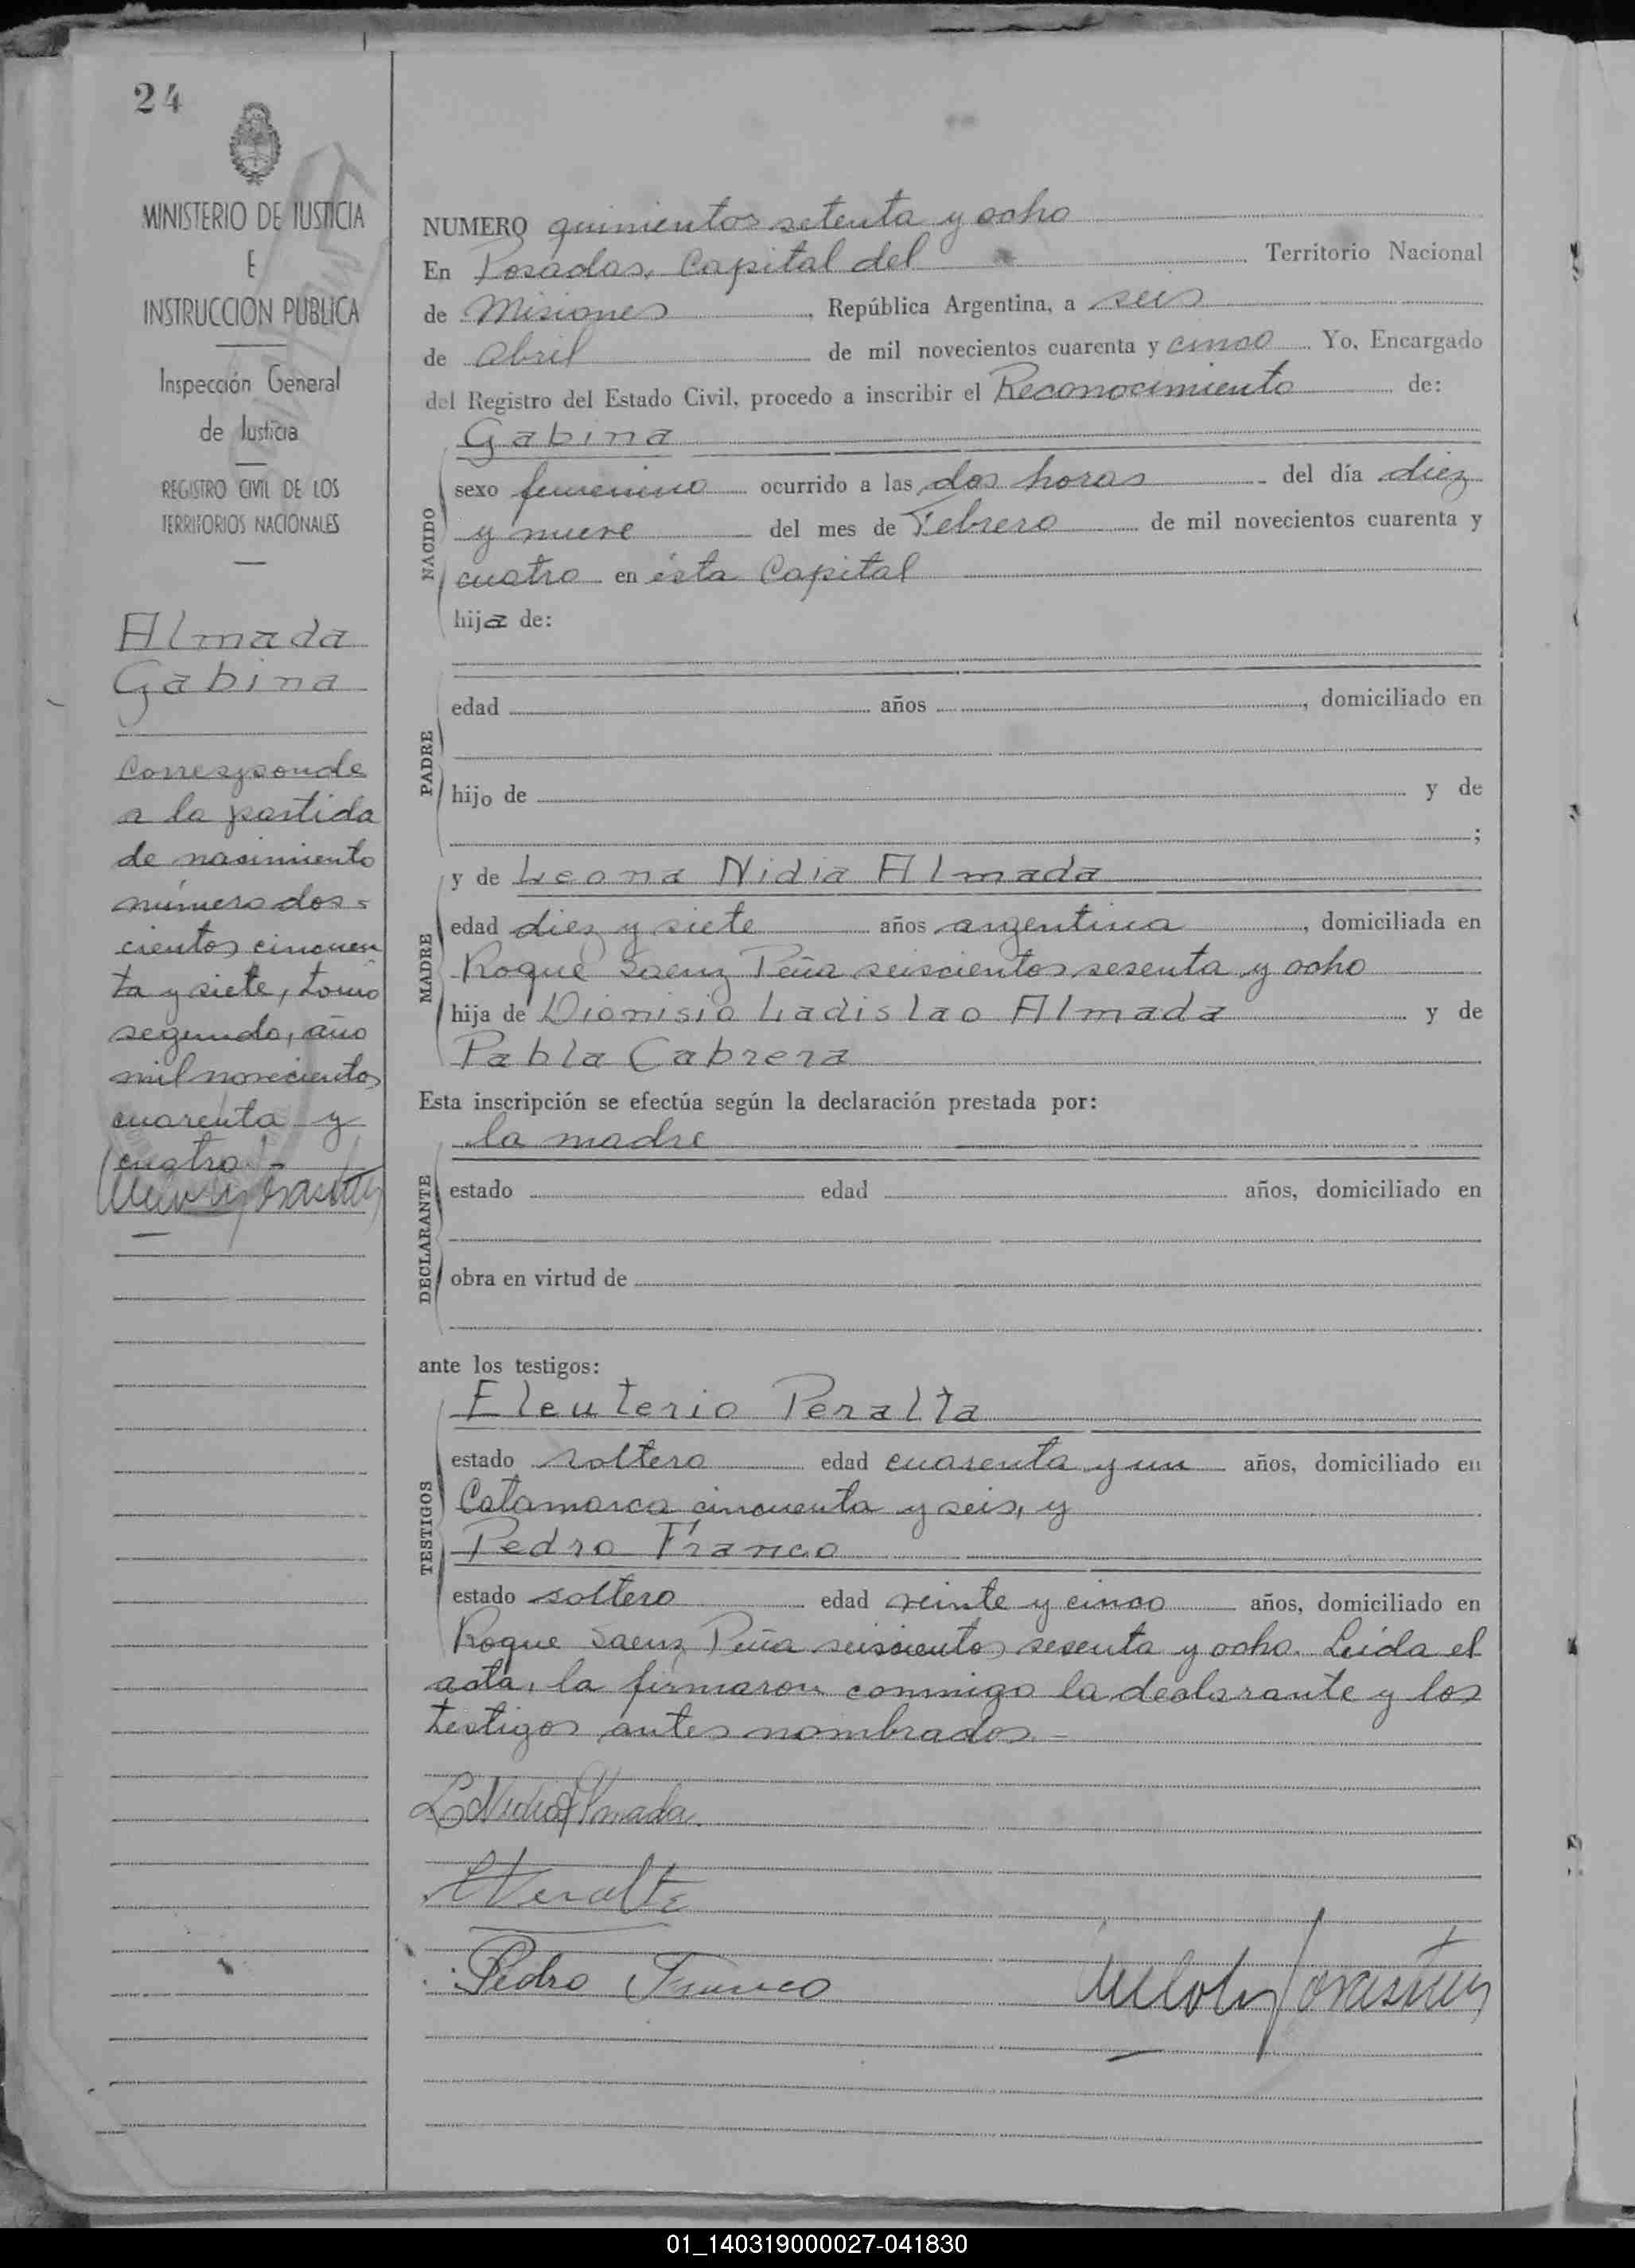 24
MINISTERIO DE JUSTICIA
E
INSTRUCCION PUBLICA
Inspección General
de Justicia
REGISTRO CIVIL DE LOS
TERRITORIOS NACIONALES
Almada
Gabina
Corresponde
a la partida
de nacimiento
número dos=
cientos cincuen
ta y siete, tomo
segundo, año
mil novecientos
cuarenta y
cuatro.-
NUMERO quinientos setenta y ocho
En Posadas, Capital del Territorio Nacional
de Misiones, República Argentina, a seis
de Abril de mil novecientos cuarenta y cinco. Yo, Encargado
del Registro del Estado Civil, procedo a inscribir el Reconocimiento de:
Gabina
NACIDO
sexo femenino ocurrido a las dos horas del día diez
y nueve del mes de Febrero de mil novecientos cuarenta y
cuatro en ésta Capital
hija de:
PADRE
edad años , domiciliado en
hijo de y de
;
MADRE
y de Leona Nidia Almada
edad diez y siete años argentina, domiciliada en
Roque Saenz Peña seiscientos sesenta y ocho
hija de Dionisio Ladislao Almada y de
Pabla Cabrera
Esta inscripción se efectúa según la declaración prestada por:
la madre
DECLARANTE
estado edad años, domiciliado en
obra en virtud de
ante los testigos:
TESTIGOS
Eleuterio Peralta
estado soltero edad cuarenta y un años, domiciliado en
Catamarca cincuenta y seis, y
Pedro Franco
estado soltero edad veinte y cinco años, domiciliado en
Roque Saenz Peña seiscientos sesenta y ocho. Leída el
acta, la firmaron conmigo la declarante y los
testigos antes nombrados.-
L Nidia Almada
EPeralta
Pedro Franco
01_140319000027-041830